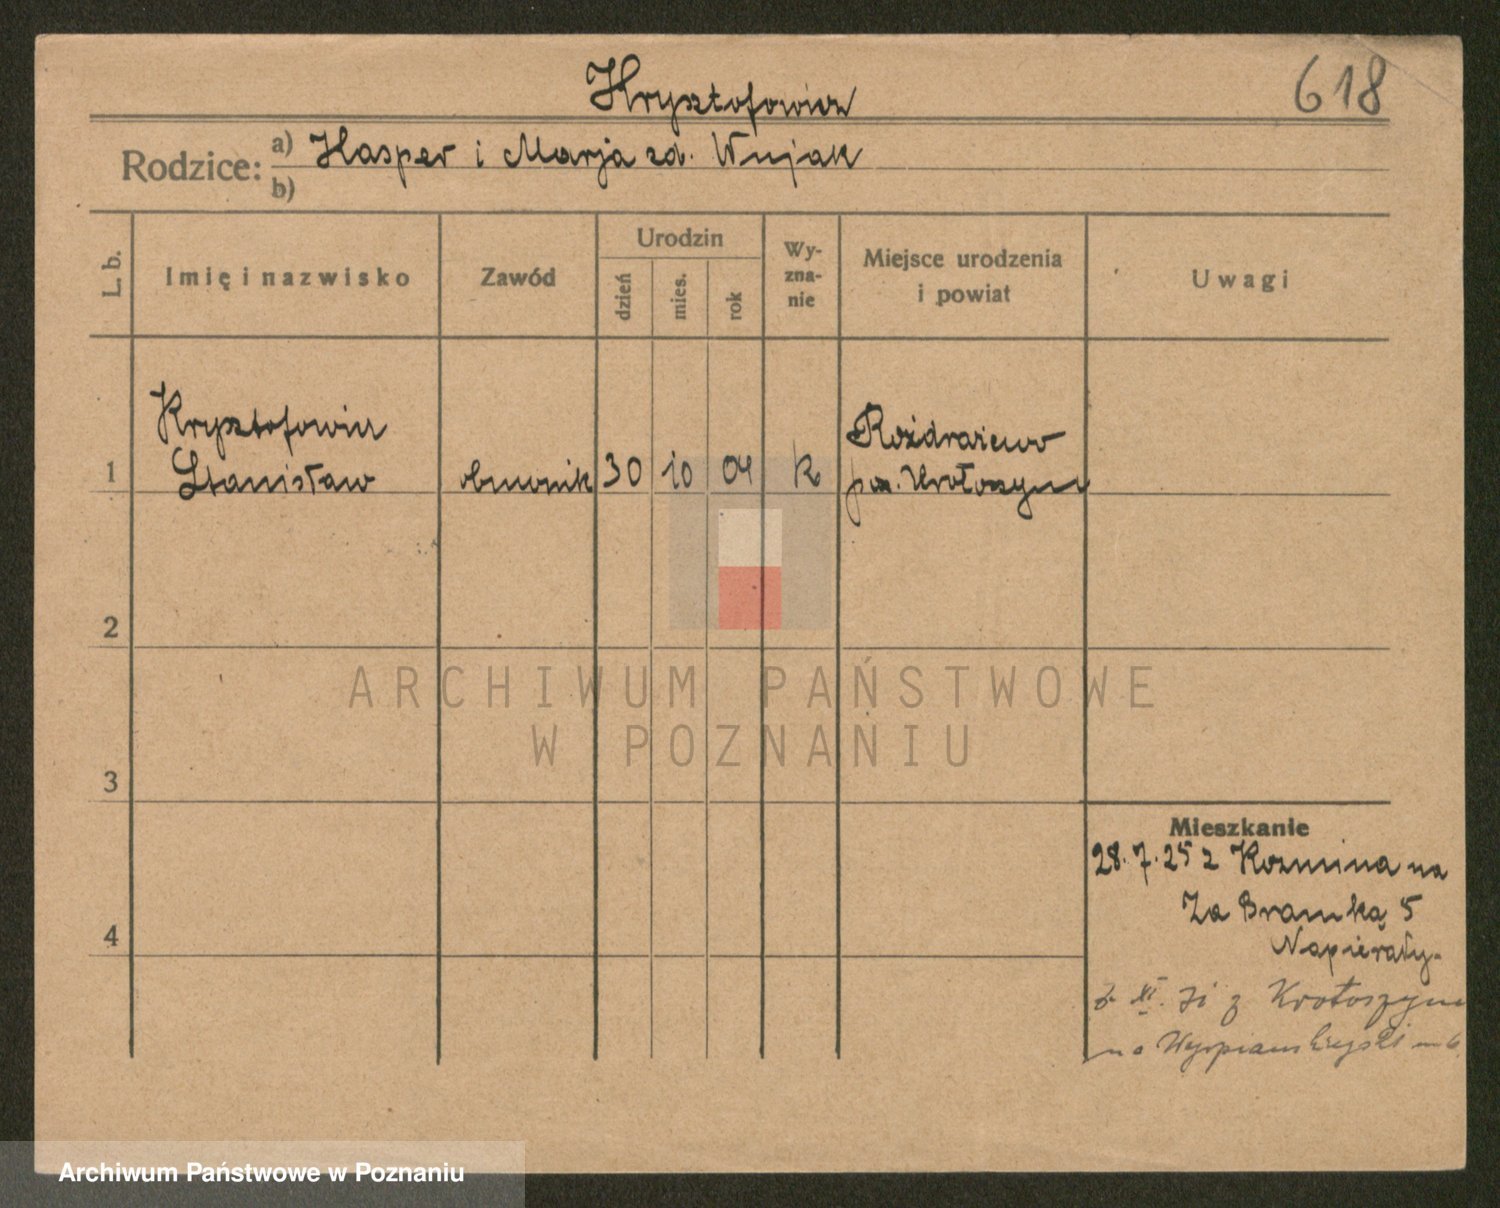 618
Krysztofowicz
Rodzice: a) Kasper i Marja zd. Wujak
b)
L. b.
Imię i nazwisko
Zawód
Urodzin
dzień
mies.
rok
Wy-
zna-
nie
Miejsce urodzenia
i powiat
Uwagi
Krysztofowicz
1 Stanisław
30 10 04 k
Rozdrażewo
pow. Krotoszyn
2
3
4
Mieszkanie
28.7.25 z Kozmina na
Za Bramką 5
Napierały.
XI. z Krotoszyna
na
ARCHIWUM PAŃSTWOWE
W POZNANIU
Archiwum Państwowe w Poznaniu